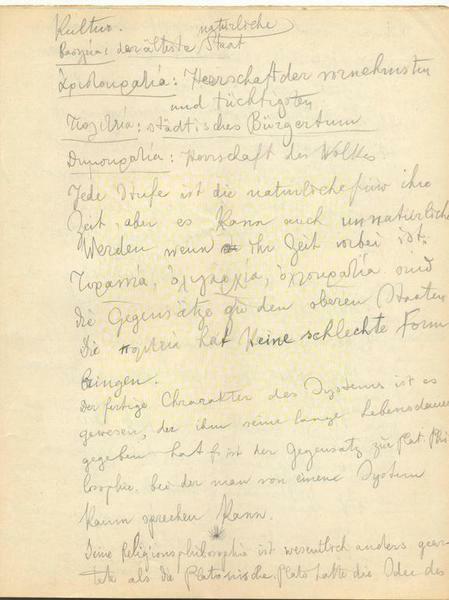 Kultur. natürliche
Βασιλεία: der älteste Staat
Ἀριστοκρατία: Herrschaft der vornehmsten
und tüchtigsten
Πολιτεία: städtisches Bürgertum
Δημοκρατία: Herrschaft des Volkes
Jede Stufe ist die natürliche für ihre
Zeit, aber es kann auch unnatürlich
werden wenn ihr Zeit vorbei ist.
Τυραννία, ὀλιγαρχία, ὀχλοκρατία sind
die Gegensätze zu den oberen Staaten
Die πολιτεία hat keine schlechte Form
bringen.
Der fertige Charakter des Systems ist es
gewesen, der ihm seine lange Lebensdauer
gegeben hat. Es ist der Gegensatz zur Plat. Phi
losophie. bei der man von einem System
kaum sprechen kann.
Seine Religionsphilosophie ist wesentlich anders gear-
tete als die Platonische. Plato hatte die Idee des